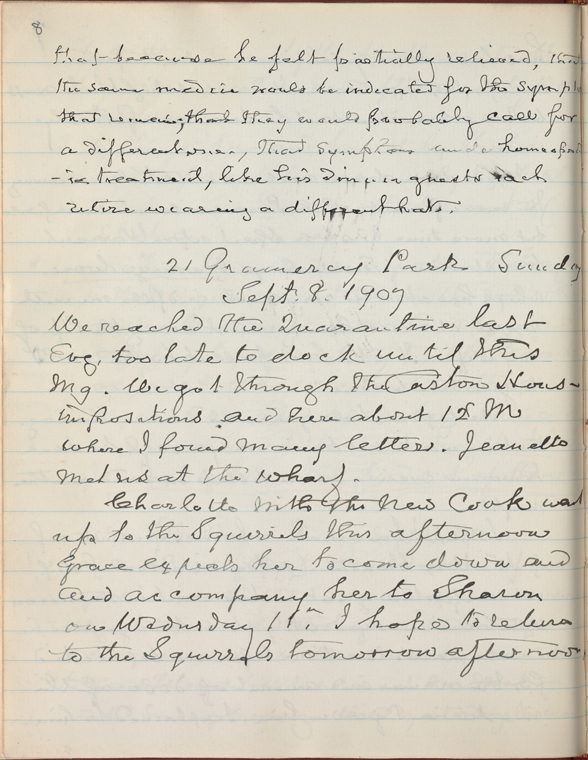 8
that because he felt partially relieved, that
the same medicin would be indicated for the sympt
that remain; that they would probably call for
a different one, that symptoms unde homeopath
-ic treatment, like his dinner guests each
retire wearing a different hat.
21 Gramercy Park Sunday
Sept. 8. 1907
We reached the Quarantine last
Evg, too late to dock until this
Mg. We got through the Custom House
impositions and here about 12 M
where I found many letters. Jeanette
met us at the wharf.
Charlotte with the New Cook went
up to the Squirrels this afternoon
Grace expects her to come down and
and accompany her to Sharon
on Wednesday 11th. I hope to return
to the Squirrels tomorrow afternoon